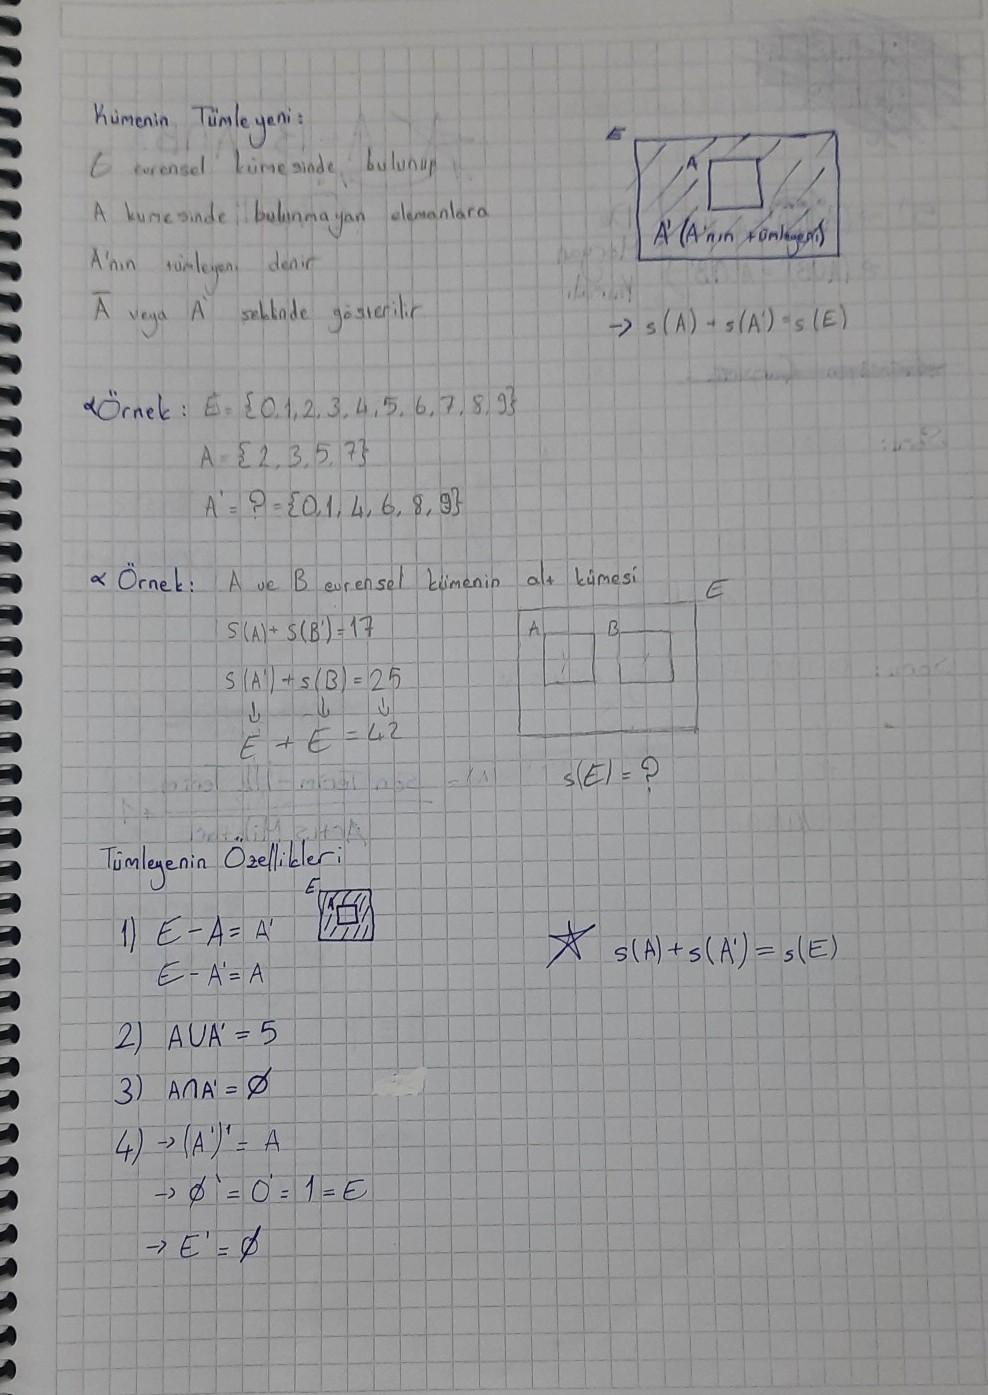 Kümenin Tümleyeni:
E evrensel kümesinde bulunup
A kümesinde bulunmayan elemanlara
A'nın tümleyeni denir
A̅ veya A' şeklinde gösterilir
E
A
A' (A'nın tümleyeni)
→ s(A) + s(A') = s(E)
∝Örnek: E = {0,1,2,3,4,5,6,7,8,9}
A = {2,3,5,7}
A' = ? = {0,1,4,6,8,9}
∝ Örnek: A ve B evrensel kümenin alt kümesi
E
A B
S(A) + S(B') = 17
S(A') + s(B) = 25
↓ ↓ ↓
E + E = 42
s(E) = ?
Tümleyenin Özellikleri
E
A
1) E - A = A'
E - A' = A
☆ s(A) + s(A') = s(E)
2) A∪A' = 5
3) A∩A' = ∅
4) → (A')' = A
→ ∅' = 0' = 1 = E
→ E' = ∅